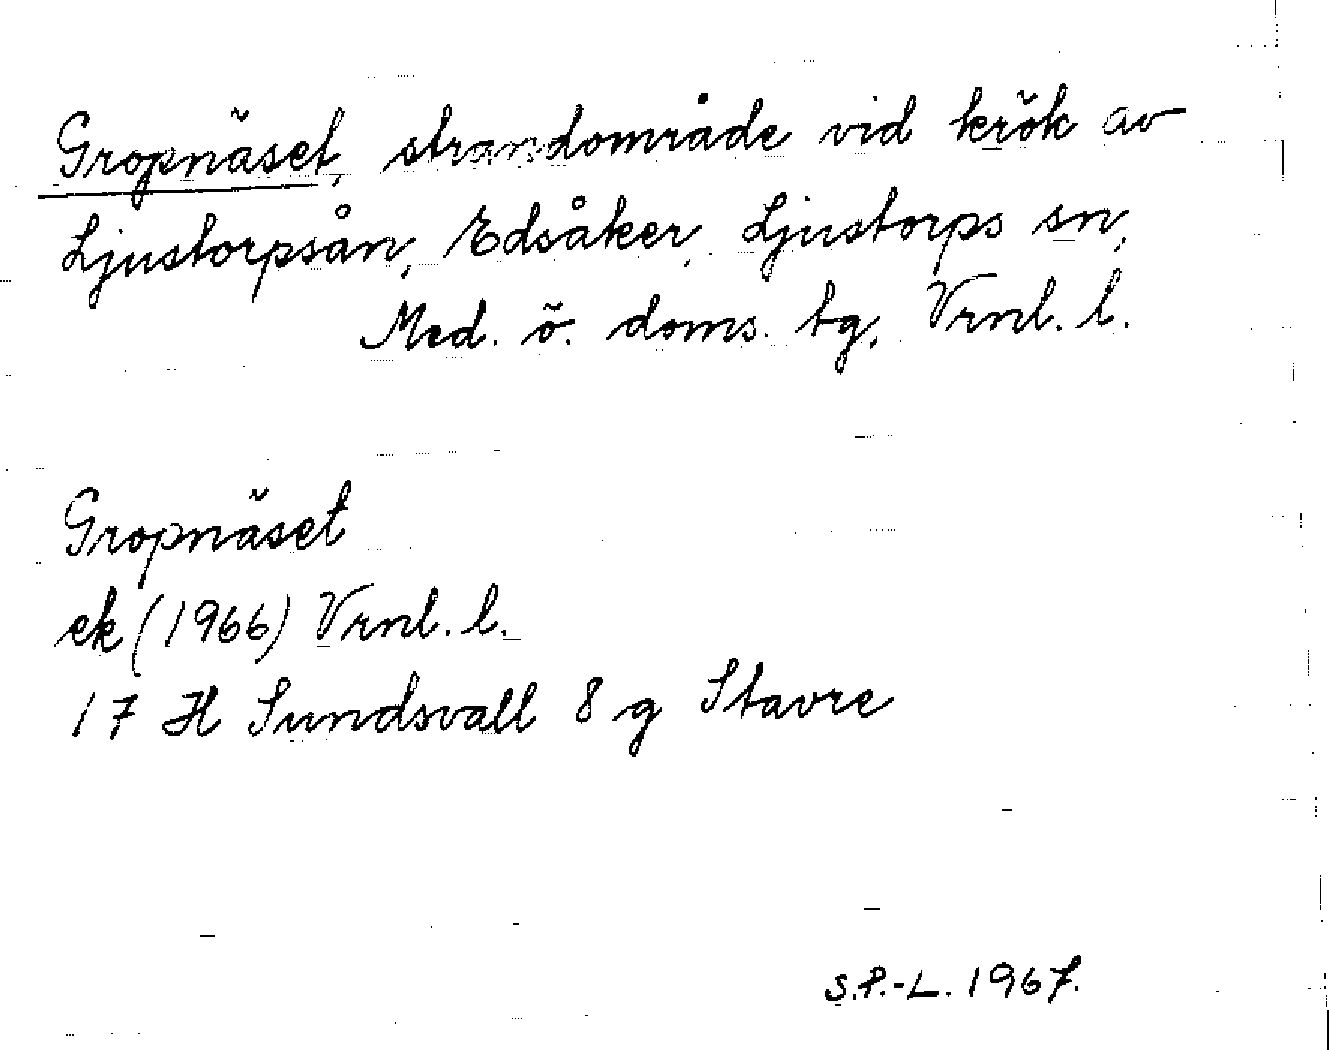 Gropnäset, strandområde vid krök av
Ljustorpsån, Edsåker, Ljustorps sn,
Med. ö. doms. tg, Vrnl. l.
Gropnäset
ek (1966) Vrnl. l.
17 H Sundsvall 8 g Stavre
S.P.-L. 1967.